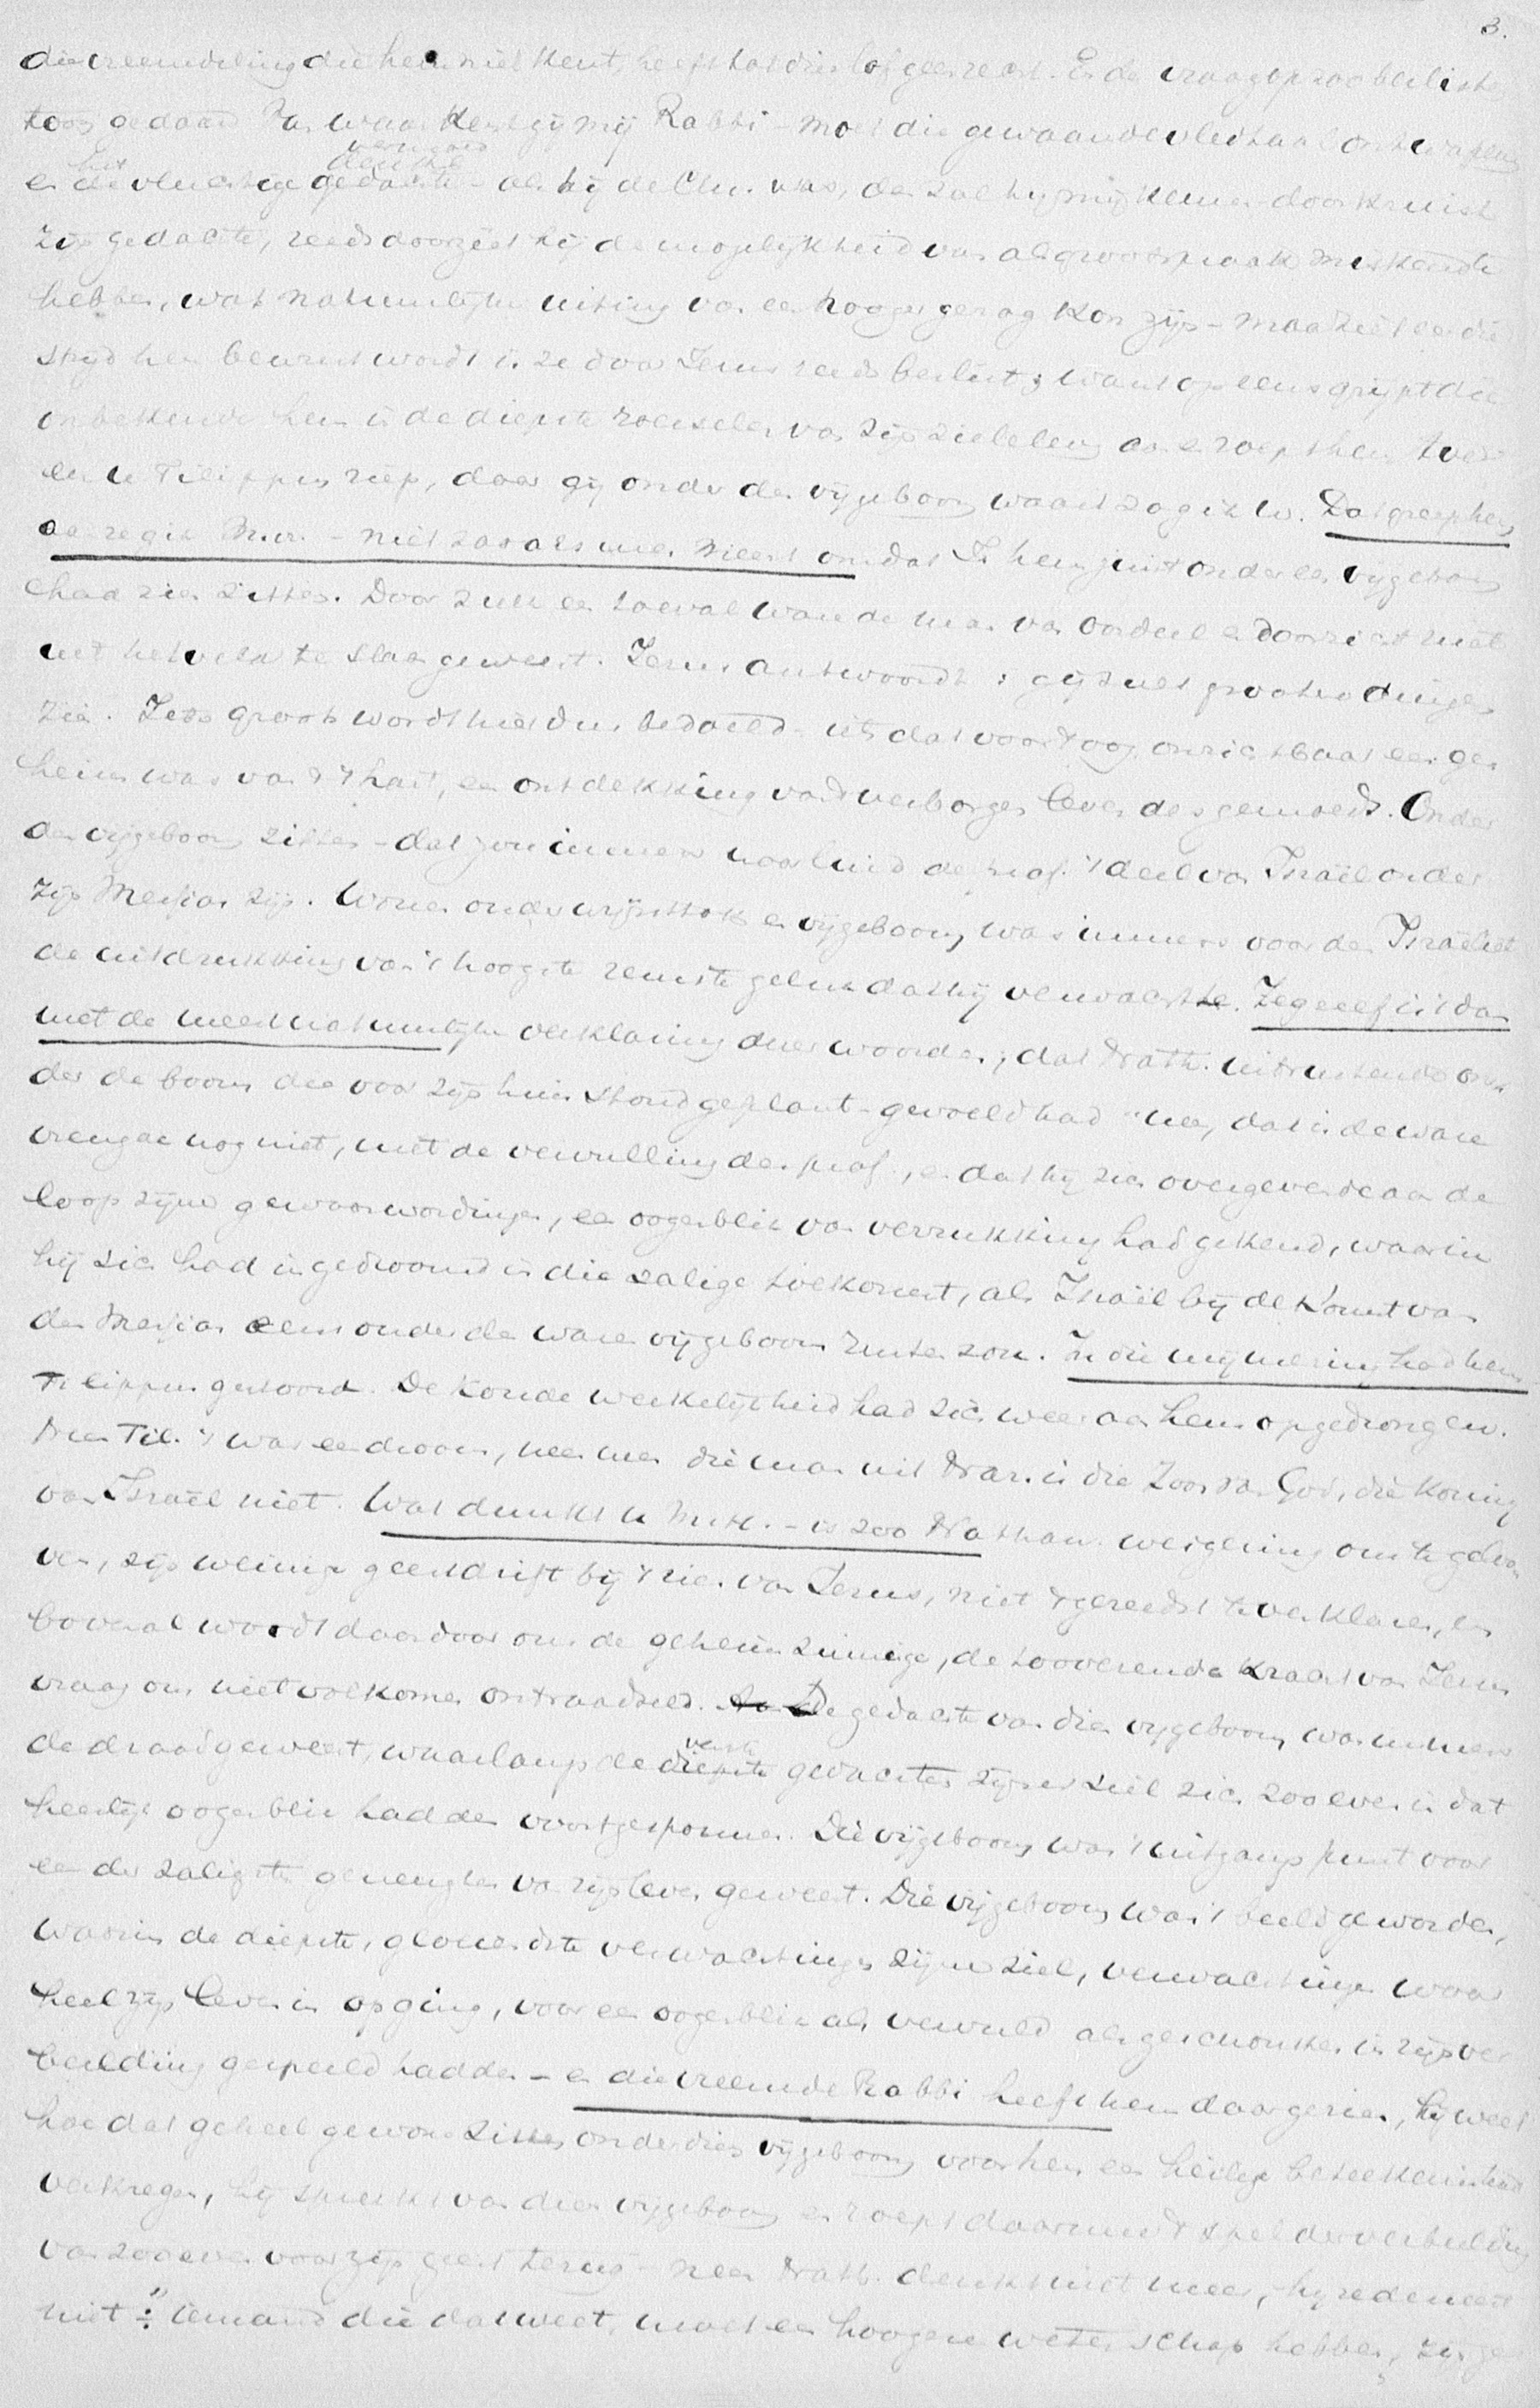 3.
die vreemdeling die hem niet kent, heeft tot dien lof geen recht. En de vraag op zoo beslisten
toon gedaan Van waar kent gij mij Rabbi - moet die gewaande vleitaal ontwapenen
vermoed
het denke
en de vluchtige gedachte - als hij de Chr. was, dan zal hij mij kennen - doorkruist
zijn gedachte, reeds doorziet hij de mogelijkheid van als grootspraak miskend te
hebben, wat natuurlijke uiting van een hooger gezag kon zijn - maar eer die
strijd hem bewust wordt is ze door Jezus reeds beslist; want opeens grijpt die
onbekende hem in de diepste roerselen van zijn zieleleven aan en roept hem toe:
eer u Filippus riep, daar gij onder den vijgeboom waart zag ik u. Dat greep hem
aan zegik M.H. - niet zooals men meent omdat J. hem juist onder een vijgeboom
had zien zitten. Door zulk een toeval ware de man van oordeel en doorzicht niet
uit het veld te slaan geweest. Jezus antwoordt: gij zult grooter dingen
zien. Iets groots wordt hier dus bedoeld - iets dat voor 't oog onzichtbaar een ge
heim was van 't hart, een ontdekking van 't verborgen leven des gemoeds. Onder
den vijgeboom zitten - dat zou immers naar luid der prof. 't deel van Israël onder
zijn Messias zijn. Wonen onder wijnstok en vijgeboom, was immers voor den Israëliet
de uitdrukking van 't hoogste reinste geluk dat hij verwachtte. Zeg eens is 't dan
niet de meest natuurlijke verklaring dezer woorden, dat Nath. uitrustende on
der de boom die voor zijn huis stond geplant - gevoeld had "nee, dat is de ware
vreugde nog niet, niet de vervulling der prof., en dat hij zich overgevende aan de
loop zijner gewaarwordingen, een oogenblik van verrukking had gekend, waarin
hij zich had ingedroomd in die zalige toekomst, als Israël bij de komst van
den Messias eens onder den waren vijgeboom rusten zou. In die mijmering had hem
Filippus gestoord. De koude werkelijkheid had zich weer aan hem opgedrongen.
Neen Fil. 't was een droom, nee men die man uit Naz. is die Zoon van God, die Koning
van Israël niet. Wat dunkt u M.H. - is zoo Nathan. weigering om te geloo
ven, zijn weinige geestdrift bij 't zien van Jezus, niet 't gereedst te verklaren, en
bovenal wordt daardoor ons de geheimzinnige, de tooverende kracht van Jezus
vraag ons niet volkomen ontraadseld. De gedachte van dien vijgeboom was immers
verste
de draad geweest, waarlangs de diepste gedachten zijner ziel zich zooeven in dat
heerlijk oogenblik hadden voortgesponnen. Die vijgeboom was 't uitgangspunt voor
een der zaligste geneugten van zijn leven geweest. Die vijgeboom was 't beeld geworden,
waarin de diepste, gloeiendste verwachtingen zijner ziel, verwachtingen waar
heel zijn leven in opging, voor een oogenblik als vervuld als geschonken in zijn ver
beelding gespeeld hadden - en die vreemde Rabbi heeft hem daar gezien, hij weet
hoe dat geheel gewone zitten onder dien vijgeboom voor hem een heilige beteekenis had
verkregen, hij spreekt van dien vijgeboom en roept daarmee 't spel der verbeelding
van zooeven voor zijn geest terug - neen Nath. denkt niet meer, hij redeneert
niet: "iemand die dat weet, moet een hoogere wetenschap hebben, zijn ge